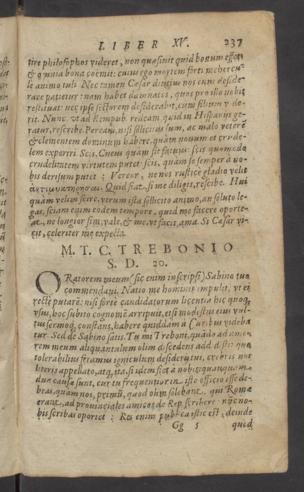 LIBER XV. 237
tire philosophos videret, non quæsiuit quid bonum esset,
& omnia bona coëmit: cuius ego mortem forti mehercu-
le animo tuli. Nec tamen Cæsar diutius nos eum deside-
rare patietur: nam habet damnatos, quos pro illo nobis
restituat: nec ipse sectorem desiderabit, cum filium vide-
rit. Nunc, vt ad Rempub. redeam, quid in Hispanijs ge-
ratur, rescribe. Peream, nisi sollicitus sum, ac malo veterē
& clementem dominum habere, quàm nouum et crude-
lem experiri. Scis, Cneus quam sit fatuus: scis quomodo
crudelitatem virtutem putet: scis, quàm se semper à no-
bis derisum putet: Vereor, ne nos rusticè gladio velit
ἀντιμυκτηρίσαι. Quid fiat, si me diligis, rescribe. Hui
quàm velim scire, vtrum ista sollicito animo, an soluto le-
gas, sciam enim eodem tempore, quid me facere oporte-
at. ne longior sim, vale, & me, vt facis, ama. Si Cæsar vi-
cit, celeriter me expecta.
M. T. C. TREBONIO
S. D. 20.
ORatorem meum (sic enim inscripsi) Sabino tuo
commendaui. Natio me hominis impulit, vt ei
rectè putarē: nisi fortè candidatorum licentia hic quoq,
vsus, hoc subito cognomē arripuit, etsi modestus eius vul-
tus sermoq, constans, habere quiddam à Curibus videba-
tur. Sed de Sabino satis. Tu mi Treboni, quoniam ad amo-
rem meum aliquantulum olim descedens addidisti: quo
tolerabilius feramus igniculum desiderij tui, crebris nos
literis appellato, atq, ita, si idem fiet à nobis quanquam
duæ causæ sunt, cur tu frequentior in isto officio esse de-
beas, quàm nos, primū, quod olim solebant, qui Romæ
erant, ad prouinciales amicos de Rep. scribere: nūc no-
bis scribas oportet: Res enim publica istic est, deinde
Gg 5 quod